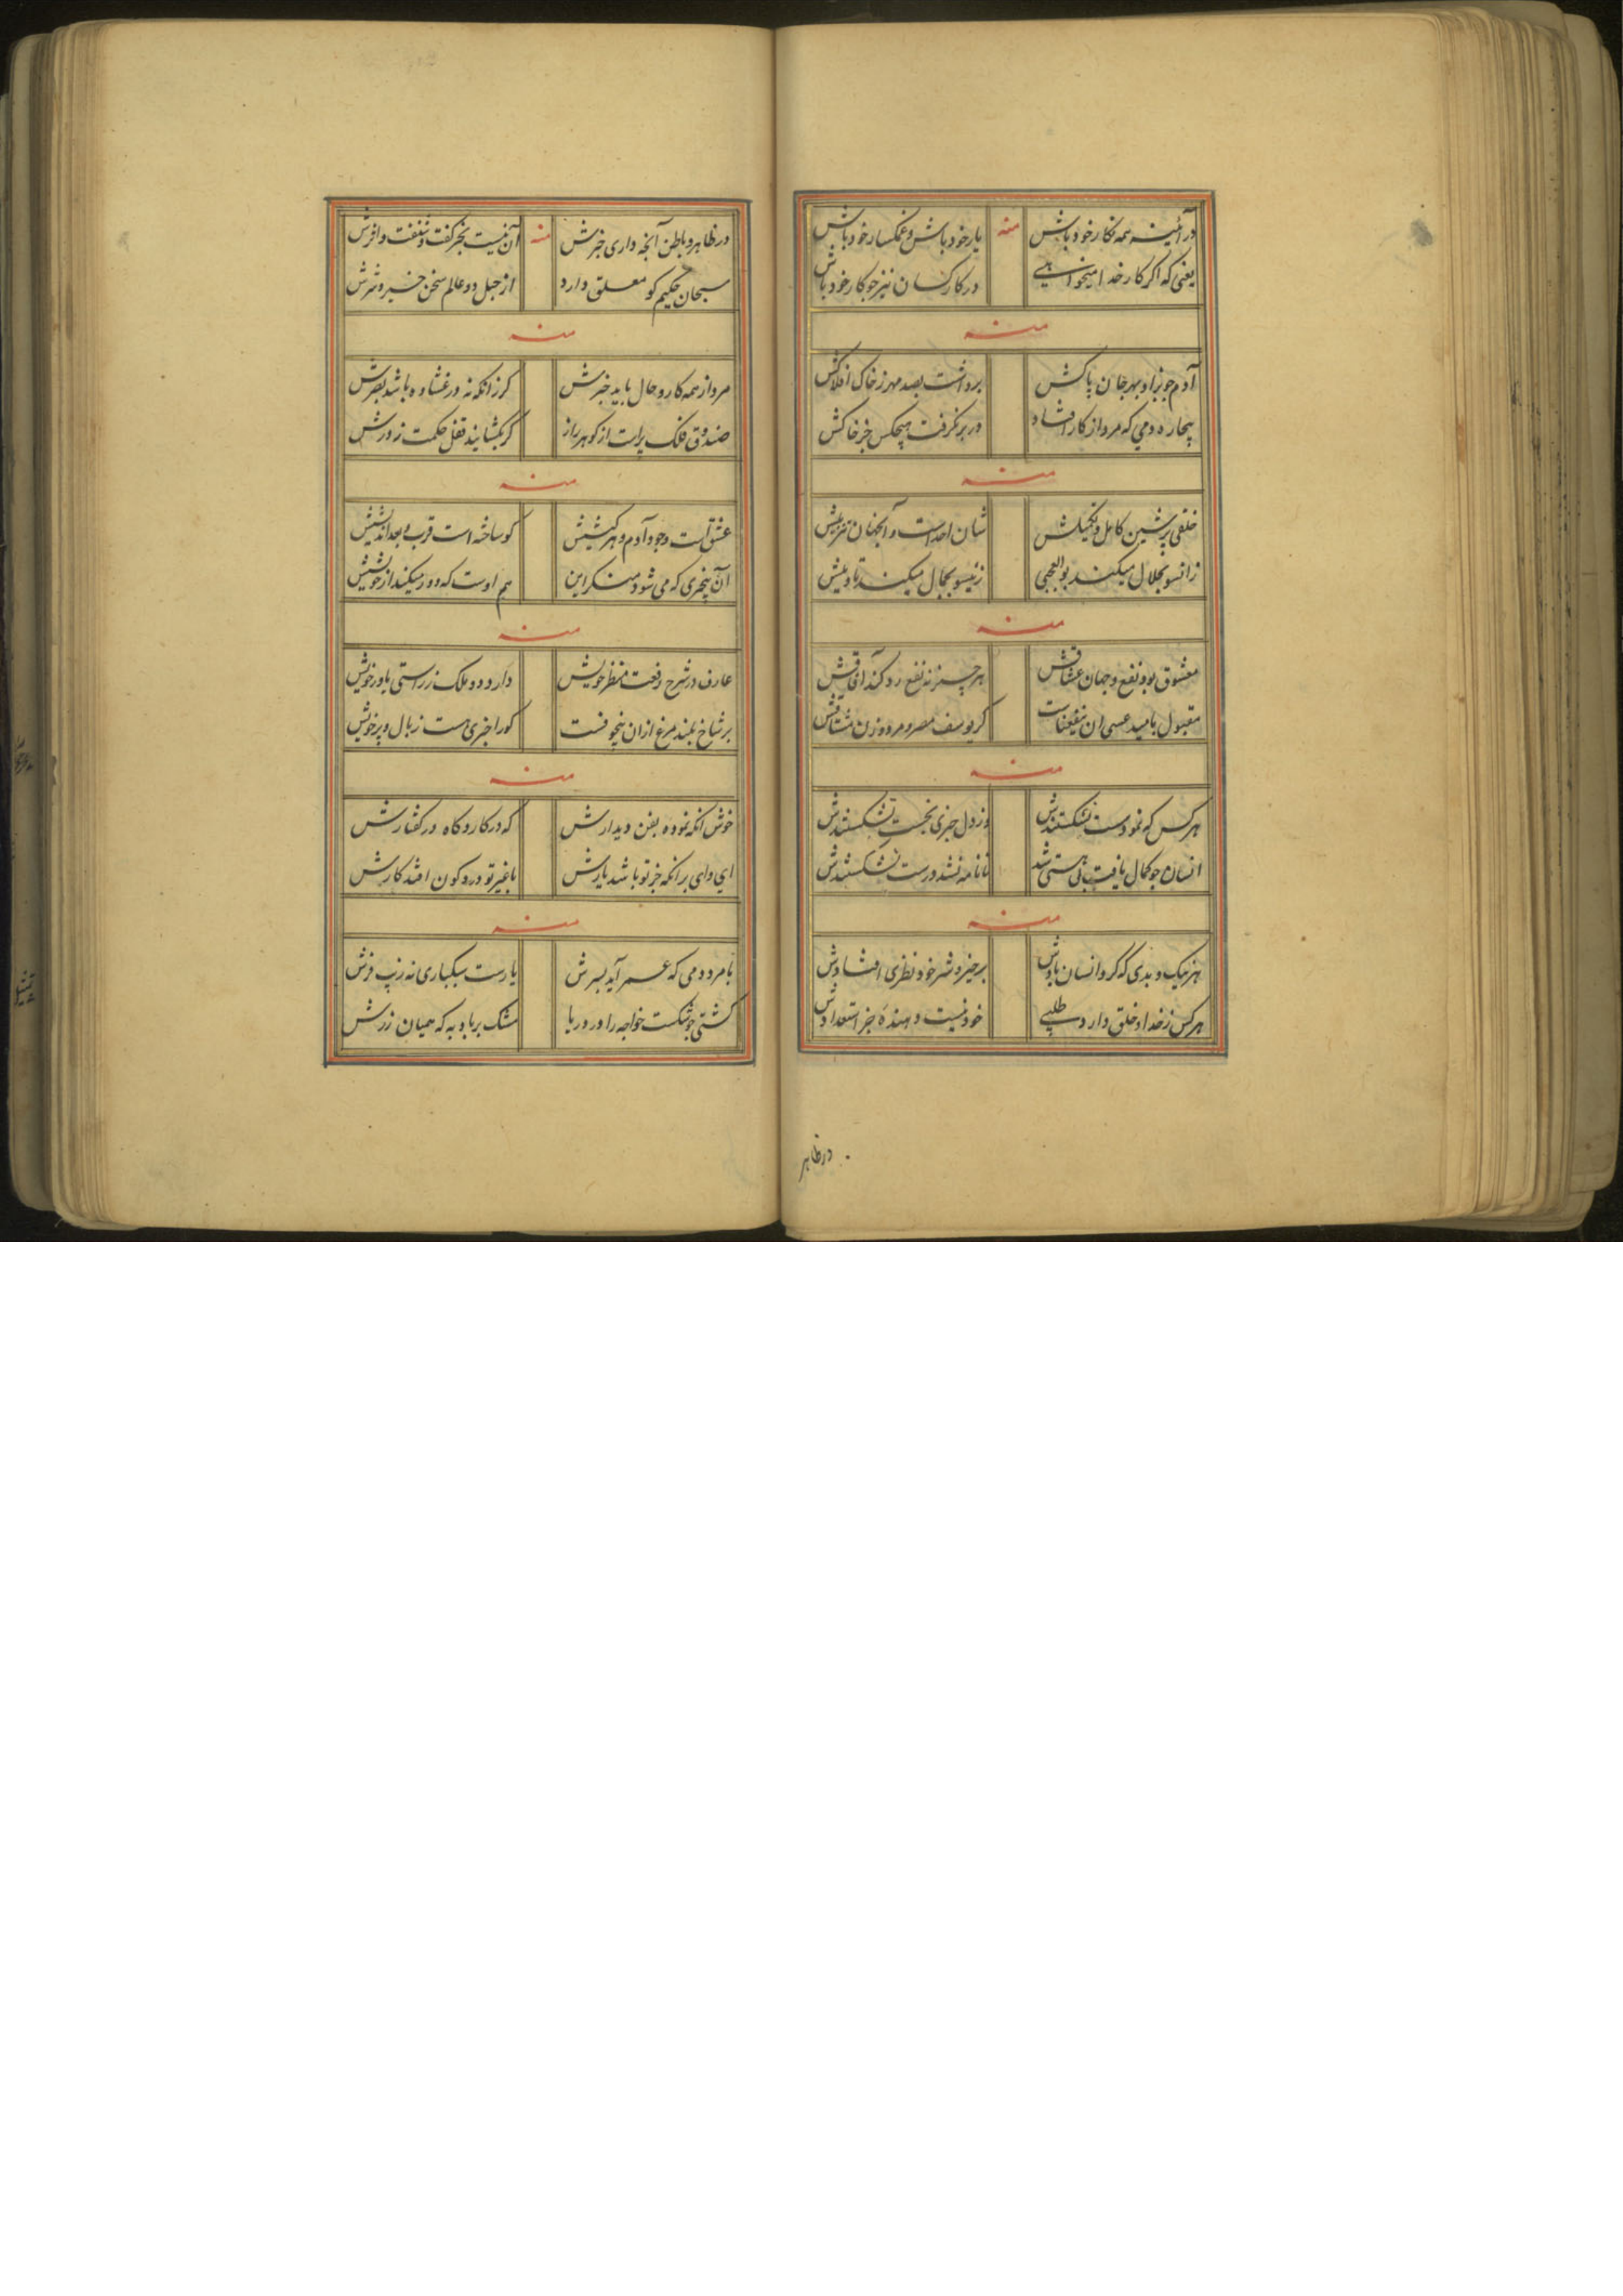 در آئینه همه نکار خود باش
منه
یار خود باش و غمکسار خود باش
یعنی که اکر کار خدا میخواهی
در کار کسان نیز جو کار خود باش
منه
آدم جو بزاد بهر جان پاکش
برداشت بصد مهر ز خاک افلاکش
بیچاره دمی که مرد از کار افتاد
در بر نکرفت هیچکس جز خاکش
منه
خلقی پر شین کامل و تکمیلش
شان احد است و آنجنان تنزیلش
زانسو بجلال میکند بوالعجبی
زینسو بجمال میکند تاویلش
منه
معشوق بود نفع و جهان عشاقش
هر چیز نه نفع رد کند آفاقش
مقبول بامید عسی ان ینفعناست
کر یوسف مصر و مرد و زن مشتاقش
منه
هر کس که نمود سست نشکستندش
وز دل جیزی نجست نشکستندش
انسان جو کمال یافت بی هستی شد
تا نامه نشد درست نشکستندش
منه
هر نیک و بدی که کرد انسان یادش
بر خیر و شر خود نظری افتادش
هر کس ز خدا و خلق دارد طلبی
خود نیست دهنده جز استعدادش
در ظاهر
در ظاهر و باطن آنجه داری خبرش
منه
آن نیست بجز کفت و شنفت و اثرش
سبحان حکیم کو معلق دارد
از حبل دو عالم سخن خیر و شرش
منه
مرد از همه کار و حال باید خبرش
کر زانکه نه در غشاوه باشد بصرش
صندوق فلک پراست از کوهر راز
کر بکشایند قفل حکمت ز درش
منه
عشق است وجود آدم و هر کیشش
کو ساخته است قرب و بعد اندیشش
آن بیخبری که می شود منکر این
هم اوست که دور میکند از خویشش
منه
عارف در شرح رفعت منظر خویش
دارد دو ملک ز راستی یاور خویش
بر شاخ بلند مرغ از ان بیخوفست
کورا خبری هست ز بال و پر خویش
منه
خوش انکه نموده بفن دیدارش
که در کار و کاه در کفتارش
ای وای بر انکه جز تو باشد یارش
با غیر تو در دو کون افتد کارش
منه
با مرد دمی که عمر آید بسرش
یار ست سبکباری نه زیب و فرش
کشتی جو شکست خواجه را در دریا
مشک پر باد به که همیان زرش